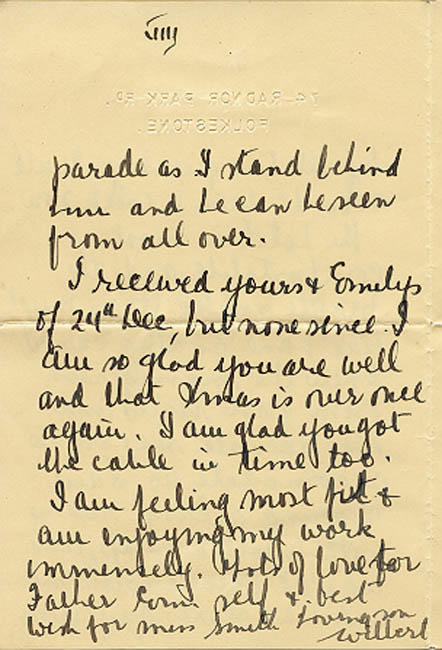 IIII
74 RADNOR PARK RD.
FOLKESTONE.
parade as I stand behind
him and he can be seen
from all over.
I received yours & Emily's
of 24th Dec, but none since. I
am so glad you are well
and that Xmas is over once
again. I am glad you got
the cable in time too.
I am feeling most fit &
am enjoying my work
immensely. Lots of love for
Father self & best
wish for miss Smith Loving son
Wilbert